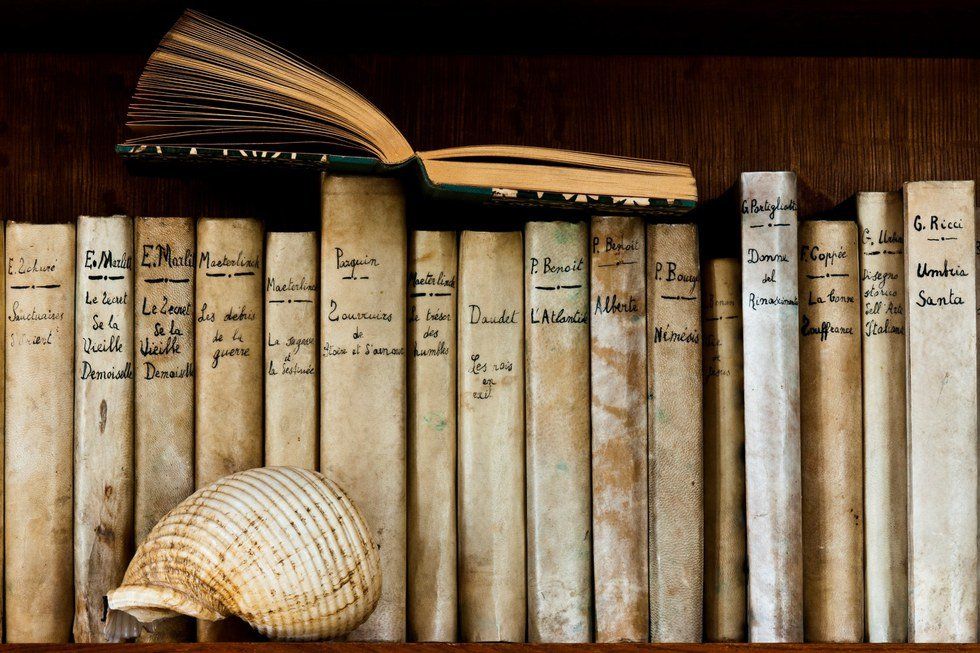 E. Schuré
Sanctuaires
d'Orient
E. Marlitt
Le Secret
de la
Vieille
Demoiselle
E. Marlit
Le Secret
de la
Vieille
Demoiselle
Maeterlinck
Les debris
de la
guerre
Maeterlinck
La sagesse
et
la destinée
Pasquin
Souvenirs
de
gloire et d'amour
Maeterlinck
Le tresor
des
humbles
Daudet
Les rois
en
exil
P. Benoit
L'Atlantide
P. Benoit
Alberte
P. Bourget
Némésis
Renan
Vie de
Jesus
G. Portigliotti
Donne
del
Rinascimento
F. Coppée
La bonne
souffrance
C. Urbani
Disegno
storico
dell'Arte
Italiana
G. Ricci
Umbria
Santa